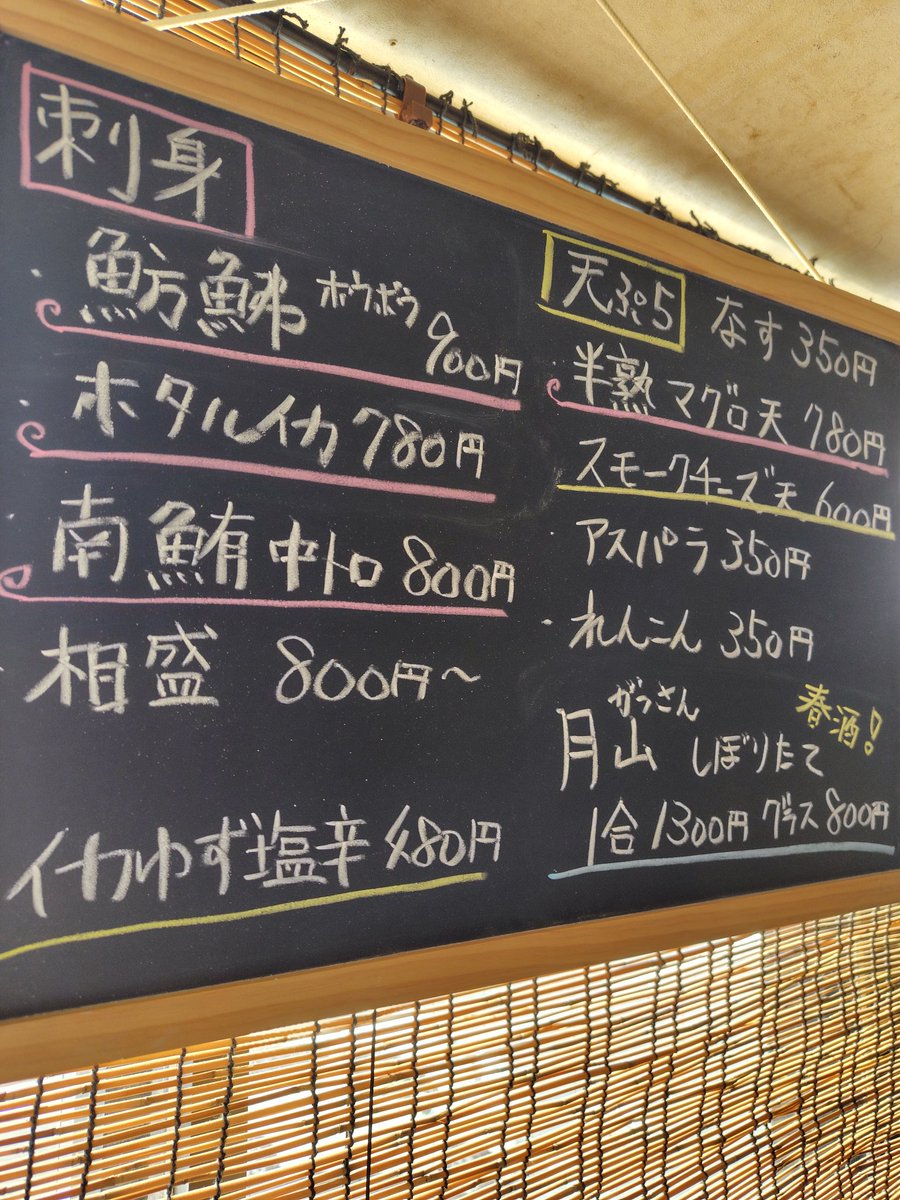 刺身
・魴鮄 ホウボウ 900円
・ホタルイカ 780円
・南鮪中トロ 800円
・相盛 800円〜
イカゆず塩辛
天ぷら なす 350円
半熟マグロ天 780円
スモークチーズ天 600円
・アスパラ 350円
・れんこん 350円
がっさん
月山 しぼりたて 春酒!
1合 1300円 グラス 800円